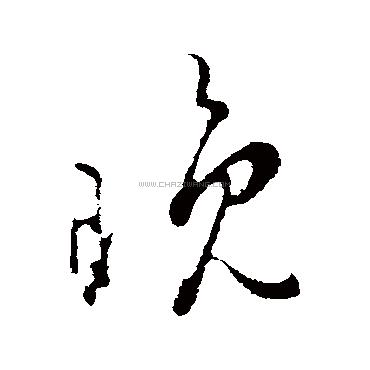 晚
WWW.CHAZIWANG.COM